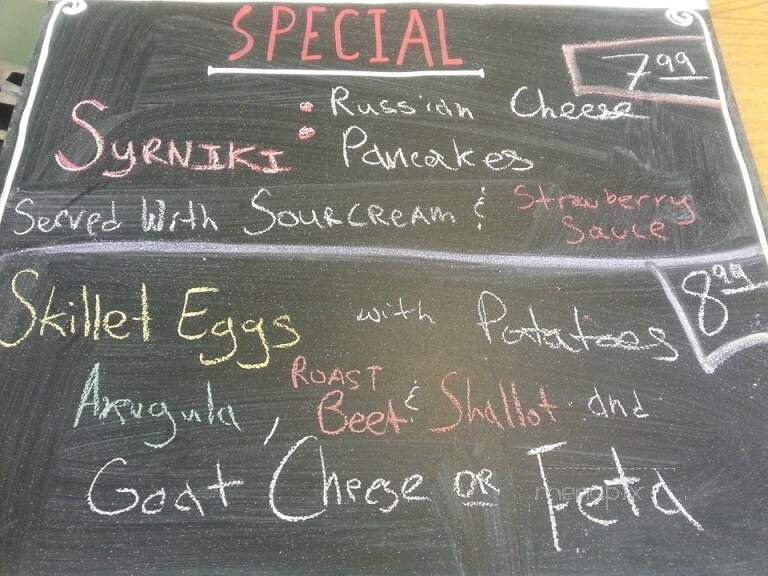 SPECIAL
7.99
SYRNIKI : Russian Cheese
Pancakes
Served With SOURCREAM & Strawberry
Sauce
8.99
Skillet Eggs with Potatoes
Arugula, ROAST Beet & Shallot and
Goat Cheese OR Feta
menupix